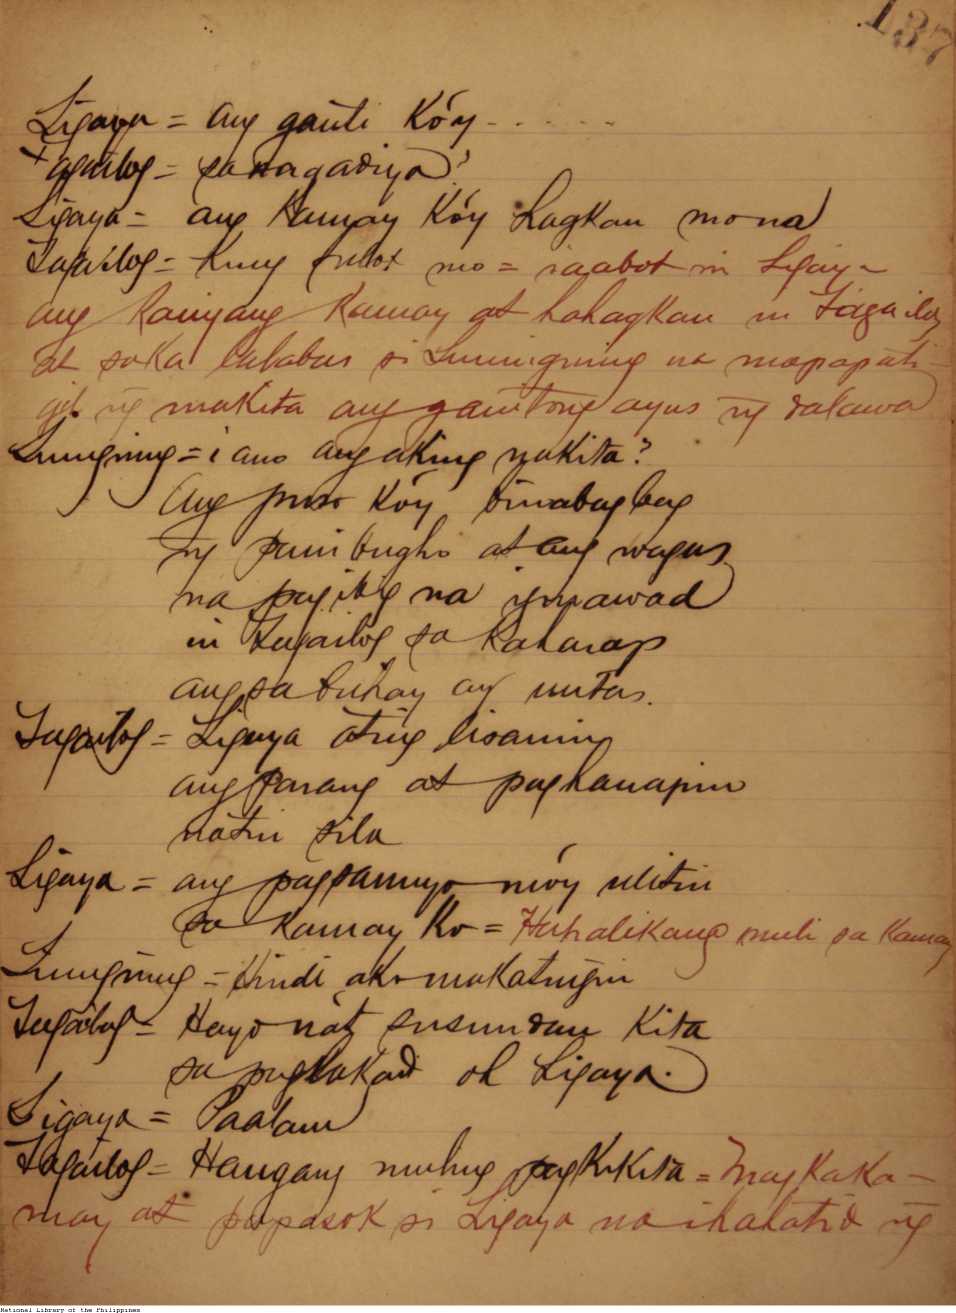 137
Ligaya = ang ganti Kó'y - - - - - -
Tagailog = sa nagadiya?
Ligaya = ang Kamay Kóy Hagkan mo na
Tagailog = Kung sulot mo = iaabot ni Ligaya
ang kaniyang Kamay at hahagkan ni Tagailog
at saka lalabas si Luningning na mapapati-
gil ng makita ang ganitong ayus ng dalawa
Luningning = ¿ano ang aking nakita?
Ang puso Kóy binabagbag
ng panibugho at ang wagas
na pagibig na iginawad
ni Tagailog sa Kaharap
ang sa buhay ay uutas.
Tagailog = Ligaya ating lisanin
ang parang at paghanapin
natin sila
Ligaya = ang pagsamyo móy ulitin
sa Kamay Ko = Hahalikang muli sa Kamay
Luningning = Hindi ako makatingin
Tagailog = Hayo nát susundan Kita
sa paglakad oh Ligaya.
Ligaya = Paalam
Tagailog = Hangang muling pagKiKita = MagKaKa-
may at papasok si Ligaya na ihahatid ng
National Library of the Philippines